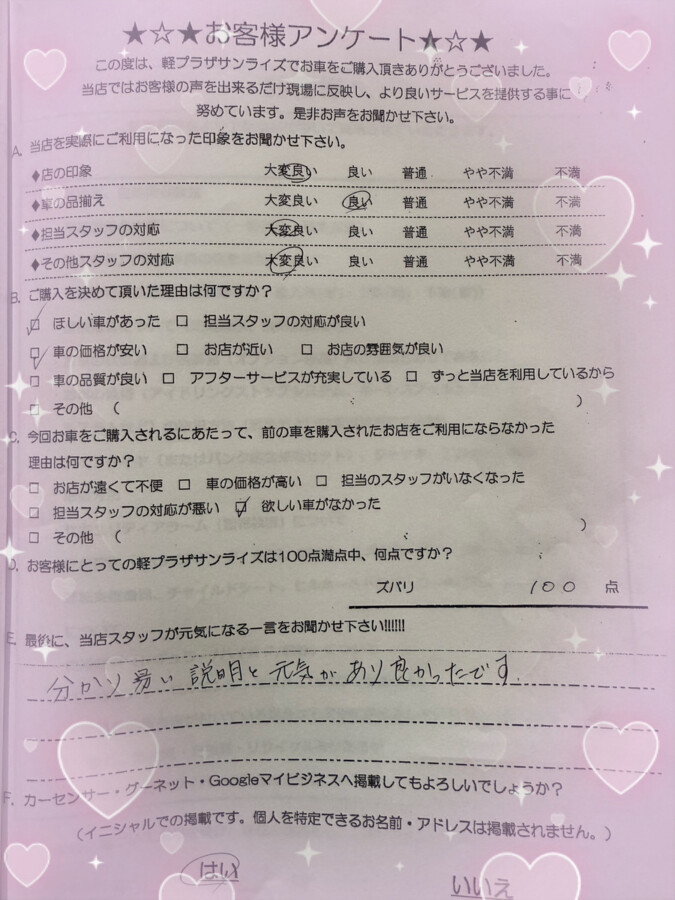 ★☆★☆お客様アンケート★☆★
この度は、軽プラザサンライズでお車をご購入頂きありがとうございました。
当店ではお客様の声を出来るだけ現場に反映し、より良いサービスを提供する事に
努めています。是非お声をお聞かせ下さい。
A. 当店を実際にご利用になった印象をお聞かせ下さい。
◆店の印象 大変良い 良い 普通 やや不満 不満
◆車の品揃え 大変良い 良い 普通 やや不満 不満
◆担当スタッフの対応 大変良い 良い 普通 やや不満 不満
◆その他スタッフの対応 大変良い 良い 普通 やや不満 不満
B. ご購入を決めて頂いた理由は何ですか?
☑ ほしい車があった □ 担当スタッフの対応が良い
☑ 車の価格が安い □ お店が近い □ お店の雰囲気が良い
□ 車の品質が良い □ アフターサービスが充実している □ ずっと当店を利用しているから
□ その他 ( )
C. 今回お車をご購入されるにあたって、前の車を購入されたお店をご利用にならなかった
理由は何ですか?
□ お店が遠くて不便 □ 車の価格が高い □ 担当のスタッフがいなくなった
□ 担当スタッフの対応が悪い ☑ 欲しい車がなかった
□ その他 ( )
D. お客様にとっての軽プラザサンライズは100点満点中、何点ですか?
ズバリ 100 点
E. 最後に、当店スタッフが元気になる一言をお聞かせ下さい!!!!!!
分かり易い説明と元気があり良かったです.
F. カーセンサー・グーネット・Googleマイビジネスへ掲載してもよろしいでしょうか?
(イニシャルでの掲載です。個人を特定できるお名前・アドレスは掲載されません。)
はい いいえ